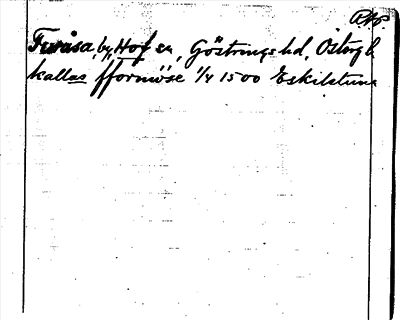 R.Ap.
Furåsa, by, Hof sn, Göstrings hd, Östergl.
kallas fformöse 1/4 1500 Eskilstuna